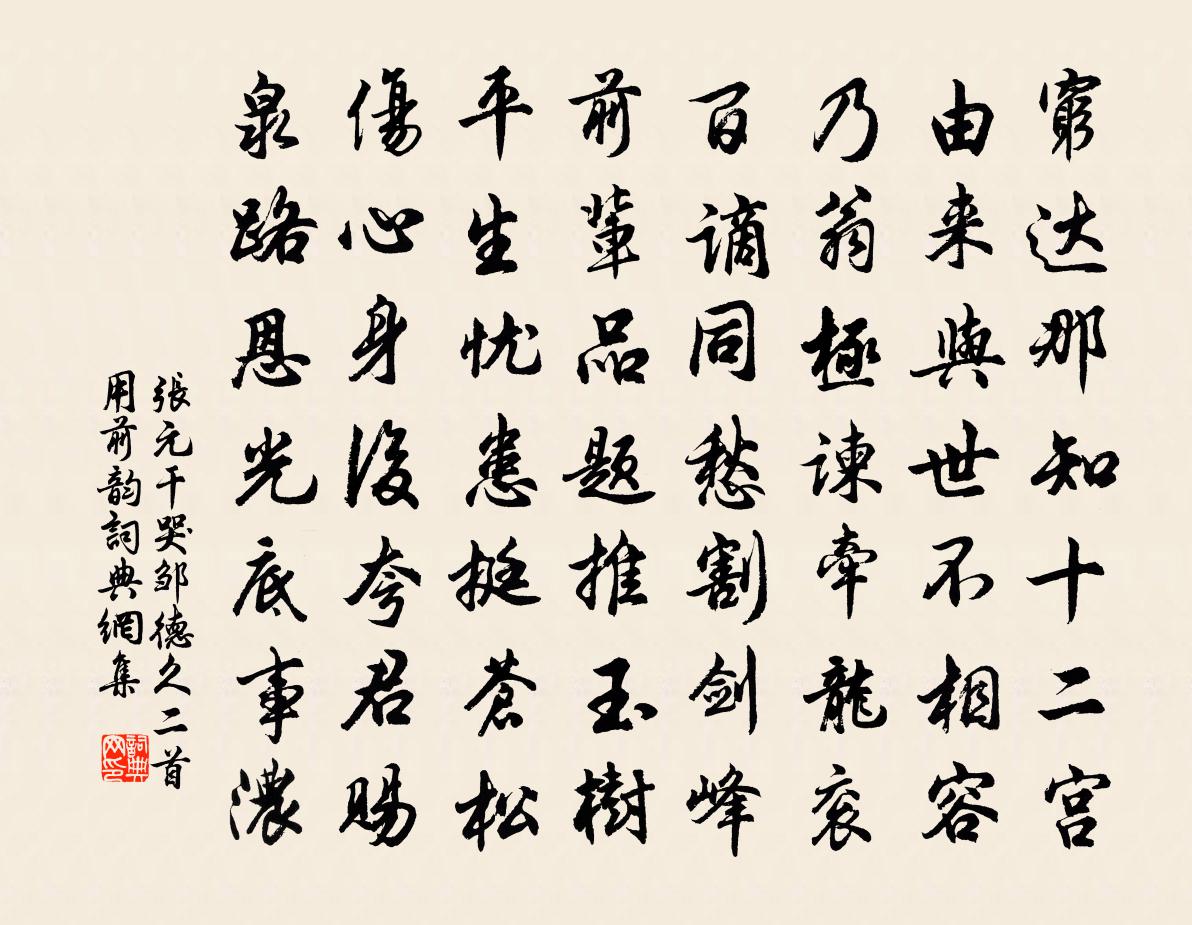 窮达那知十二宫
由来與世不相容
乃翁極諫牵龍衮
百谪同愁割剑峰
前輩品题推玉樹
平生忧患挺蒼松
傷心身後夸君賜
泉路恩光底事濃
張元干哭邹德久二首
用前韵詞典網集
詞典网印